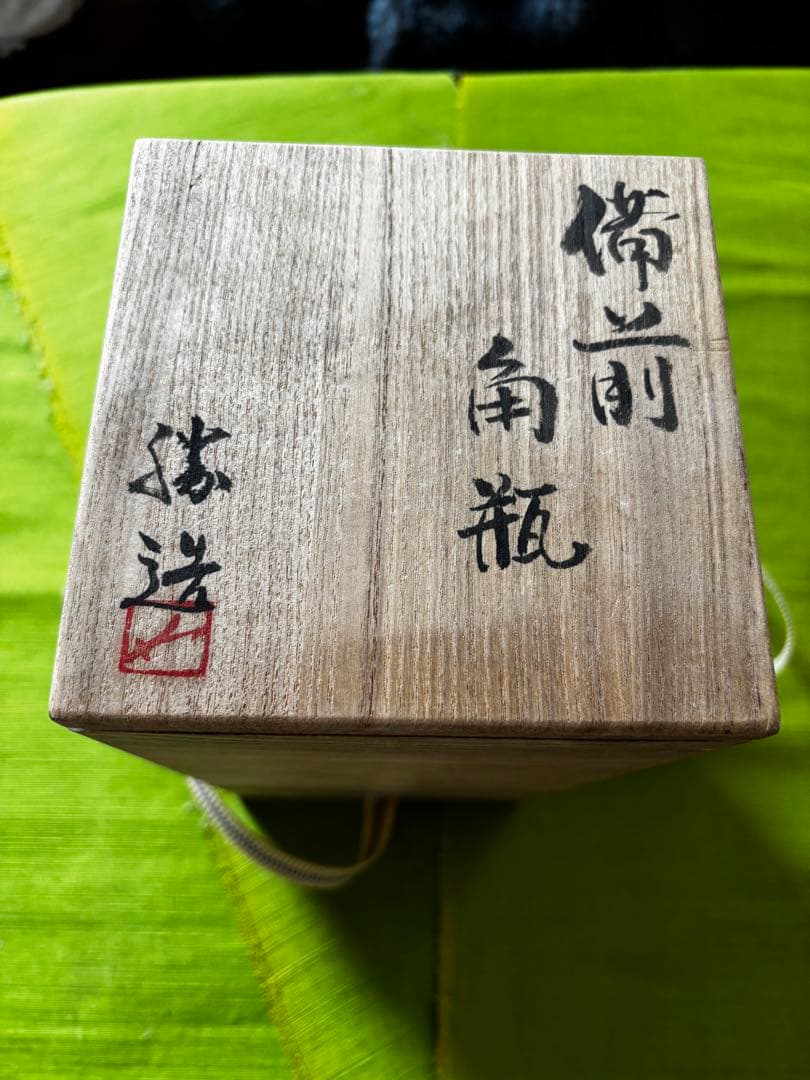 備前
角瓶
勝造